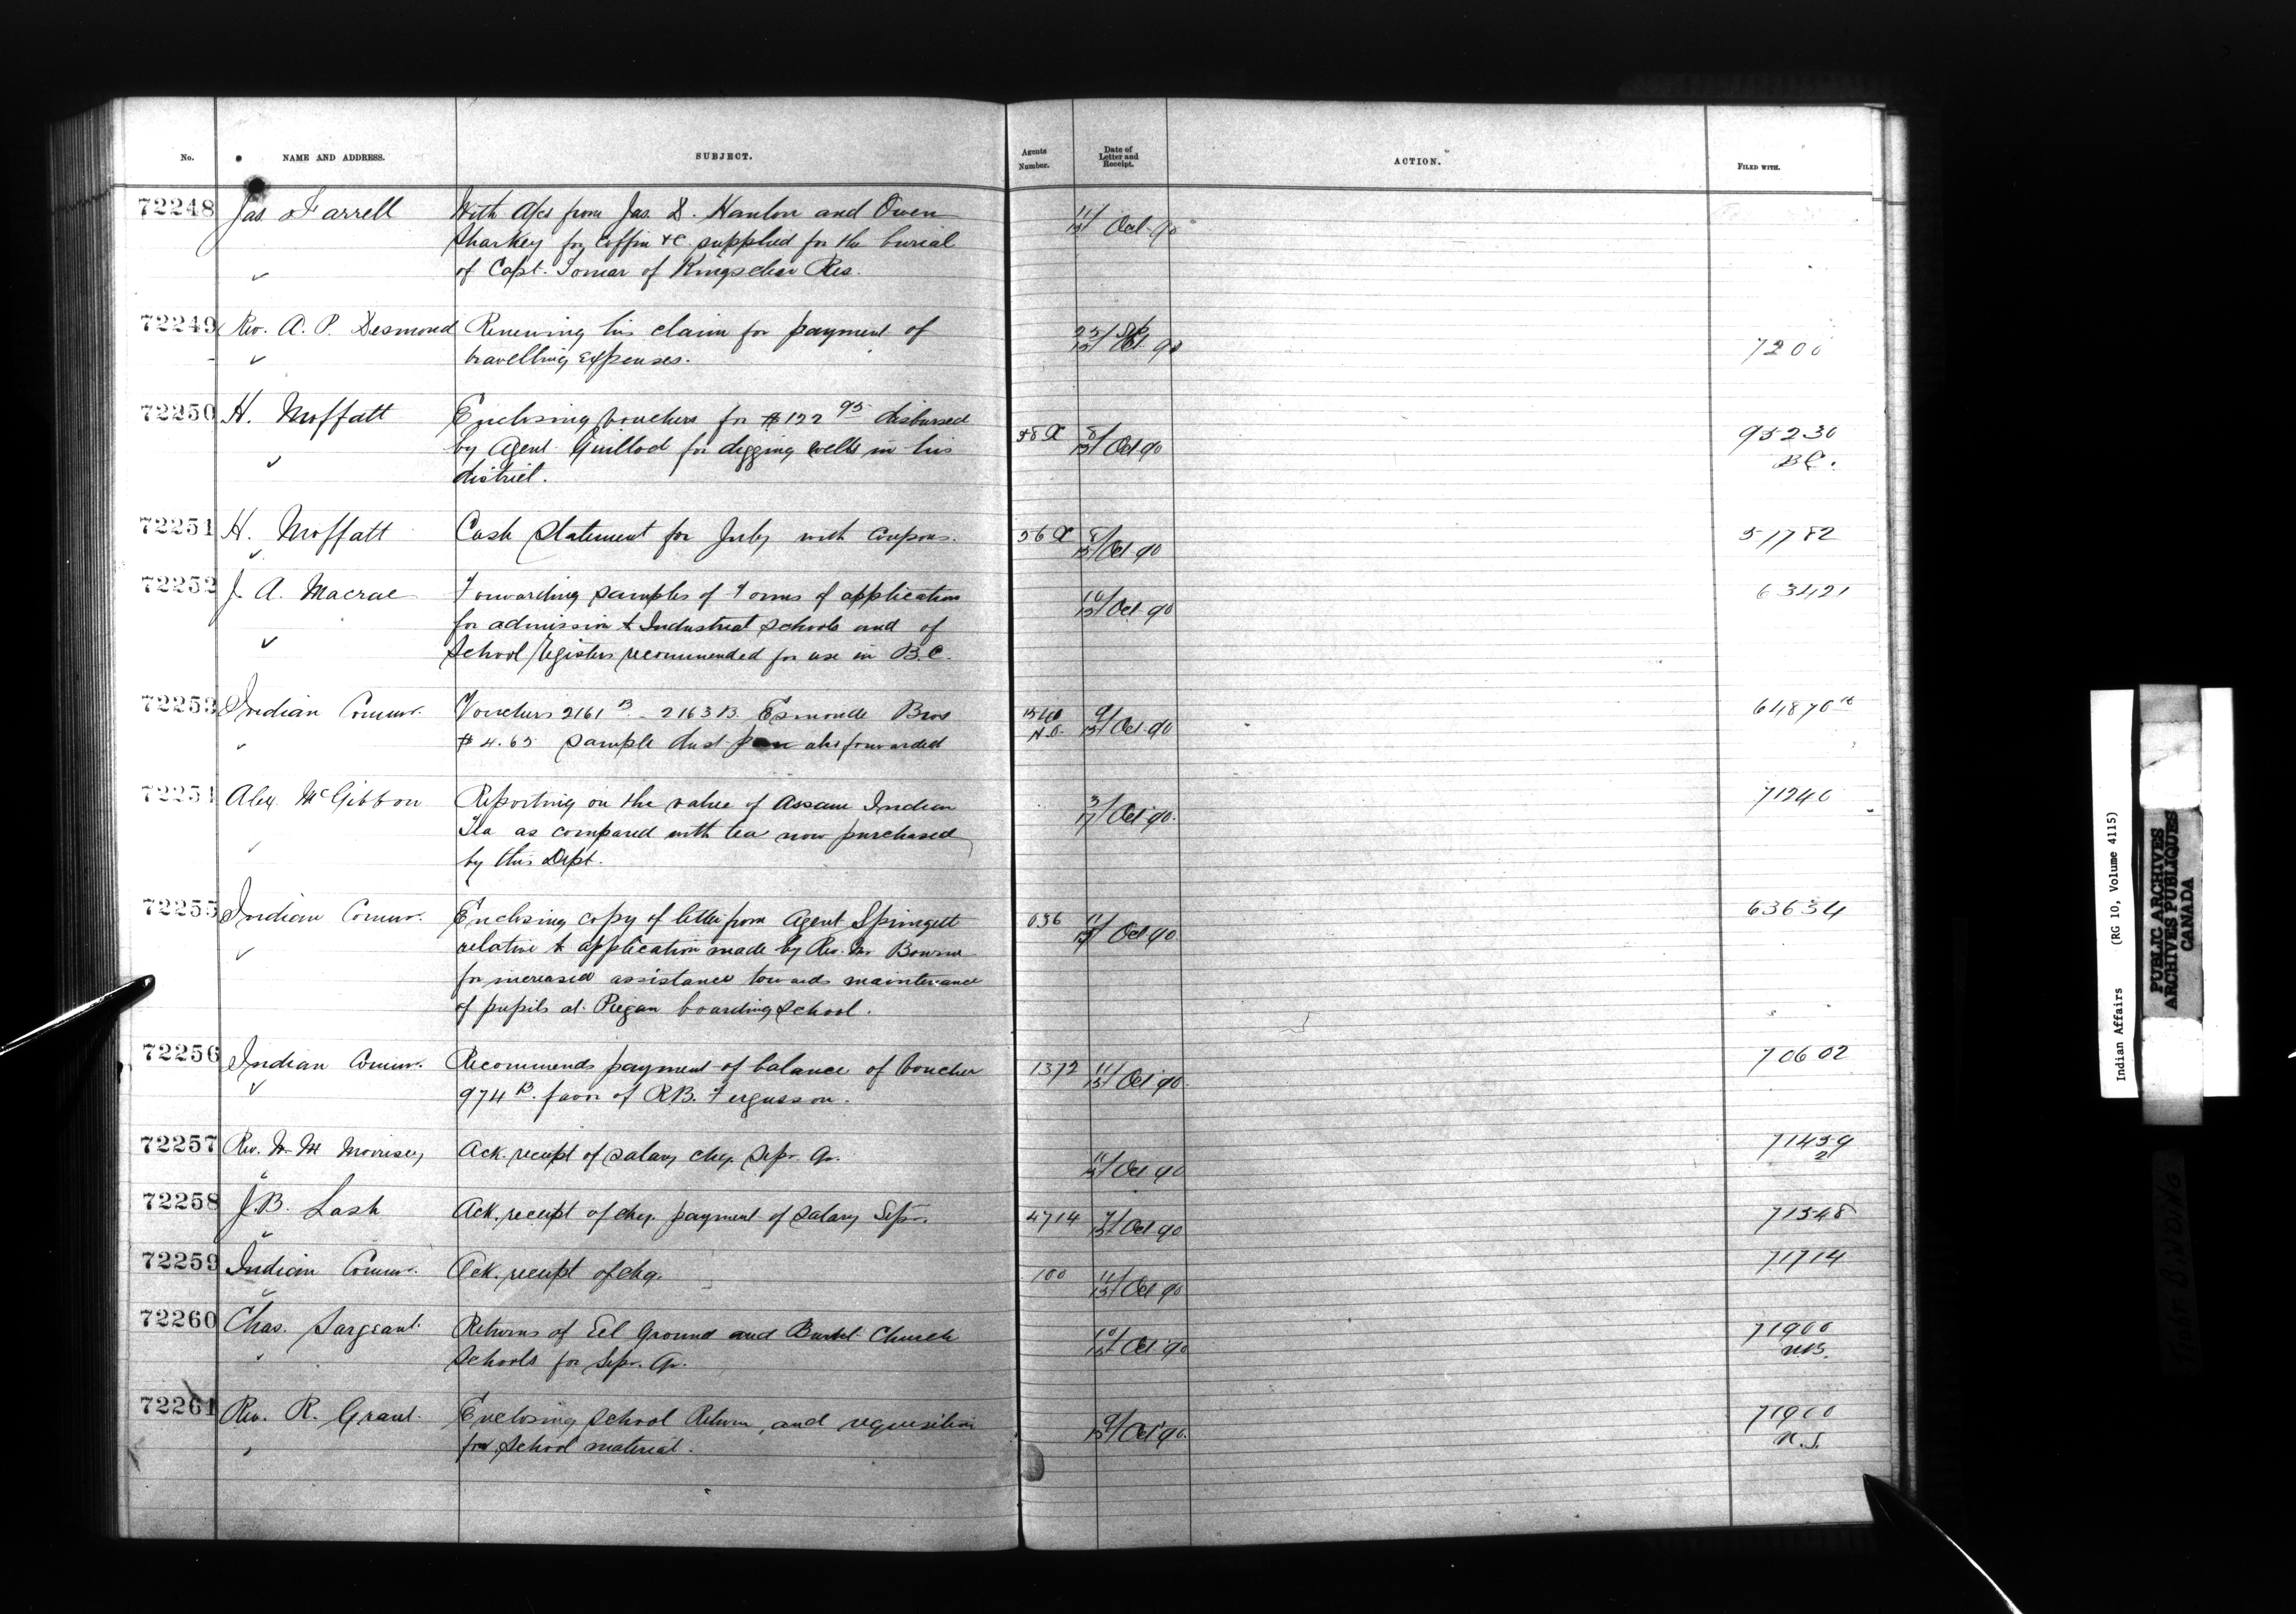 No. NAME AND ADDRESS. SUBJECT. Agents Number. Date of Letter and Receipt. ACTION. FILED WITH.
72248 Jas Farrell With A/cs from Jas. D. Hanlon and Owen 11/13 Oct 90
Sharkey for Coffin &c supplied for the burial
of Capt. Tomar of Kingsclear Res.
72249 Rev. A. P. Desmond Renewing his claim for payment of 23/Sep 13/Oct 90 7200
travelling expenses.
72250 H. Moffatt Enclosing vouchers for $122 95 disbursed 58 X 8/13 Oct 90 95230
by Agent Guillod for digging wells in his B.C.
district.
72251 H. Moffatt Cash Statement for July with Coupons. 56 X 8/13 Oct 90 51782
72252 J. A. Macrae Forwarding samples of Forms of application 10/13 Oct 90 63421
for admission to Industrial Schools and of
School registers recommended for use in B.C.
72253 Indian Commr. Vouchers 2161 B - 2163 B. Esmonde Bros 1540 N.O. 9/13 Oct 90 64870
$4.65 sample dust pan also forwarded
72254 Alex. McGibbon Reporting on the value of Assam Indian 3/11 Oct 90. 71240
Tea as compared with tea now purchased
by this Dept.
72255 Indian Commr. Enclosing copy of letter from Agent Springett 036 11/13 Oct 90 63634
relative to application made by Rev. Mr Bourne
for increased assistance towards maintenance
of pupils at Piegan boarding school.
72256 Indian Commr. Recommends payment of balance of Voucher 1372 11/13 Oct 90. 70602
974 B. favor of R.B. Fergusson.
72257 Rev. W. M Morrisey Ack. receipt of salary chq. Sepr. Qr. 11/13 Oct 90 71459
2
72258 J.B. Lash Ack. receipt of chq. payment of salary Sepr. 4714 7/13 Oct 90 71548
72259 Indian Commr. Ack. receipt of chq. 100 11/13 Oct 90 71714
72260 Chas. Sargeant Returns of Eel Ground and Burnt Church 10/13 Oct 90 71900
Schools for Sepr. Qr. N.B.
72261 Rev. R. Grant Enclosing School Return, and requisition 9/13 Oct 90. 71900
for School material. N.S.
Indian Affairs (RG 10, Volume 4115)
PUBLIC ARCHIVES
ARCHIVES PUBLIQUES
CANADA